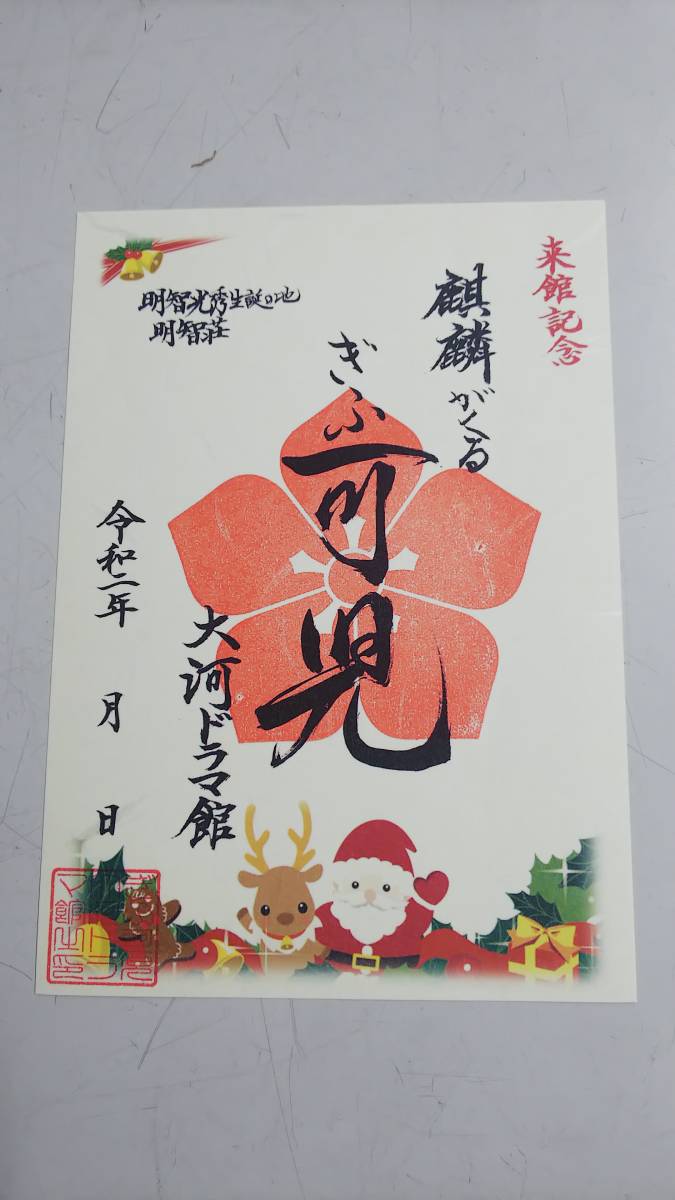 来館記念
麒麟がくる
ぎふ可児
大河ドラマ館
明智光秀生誕の地
明智荘
令和二年 月 日